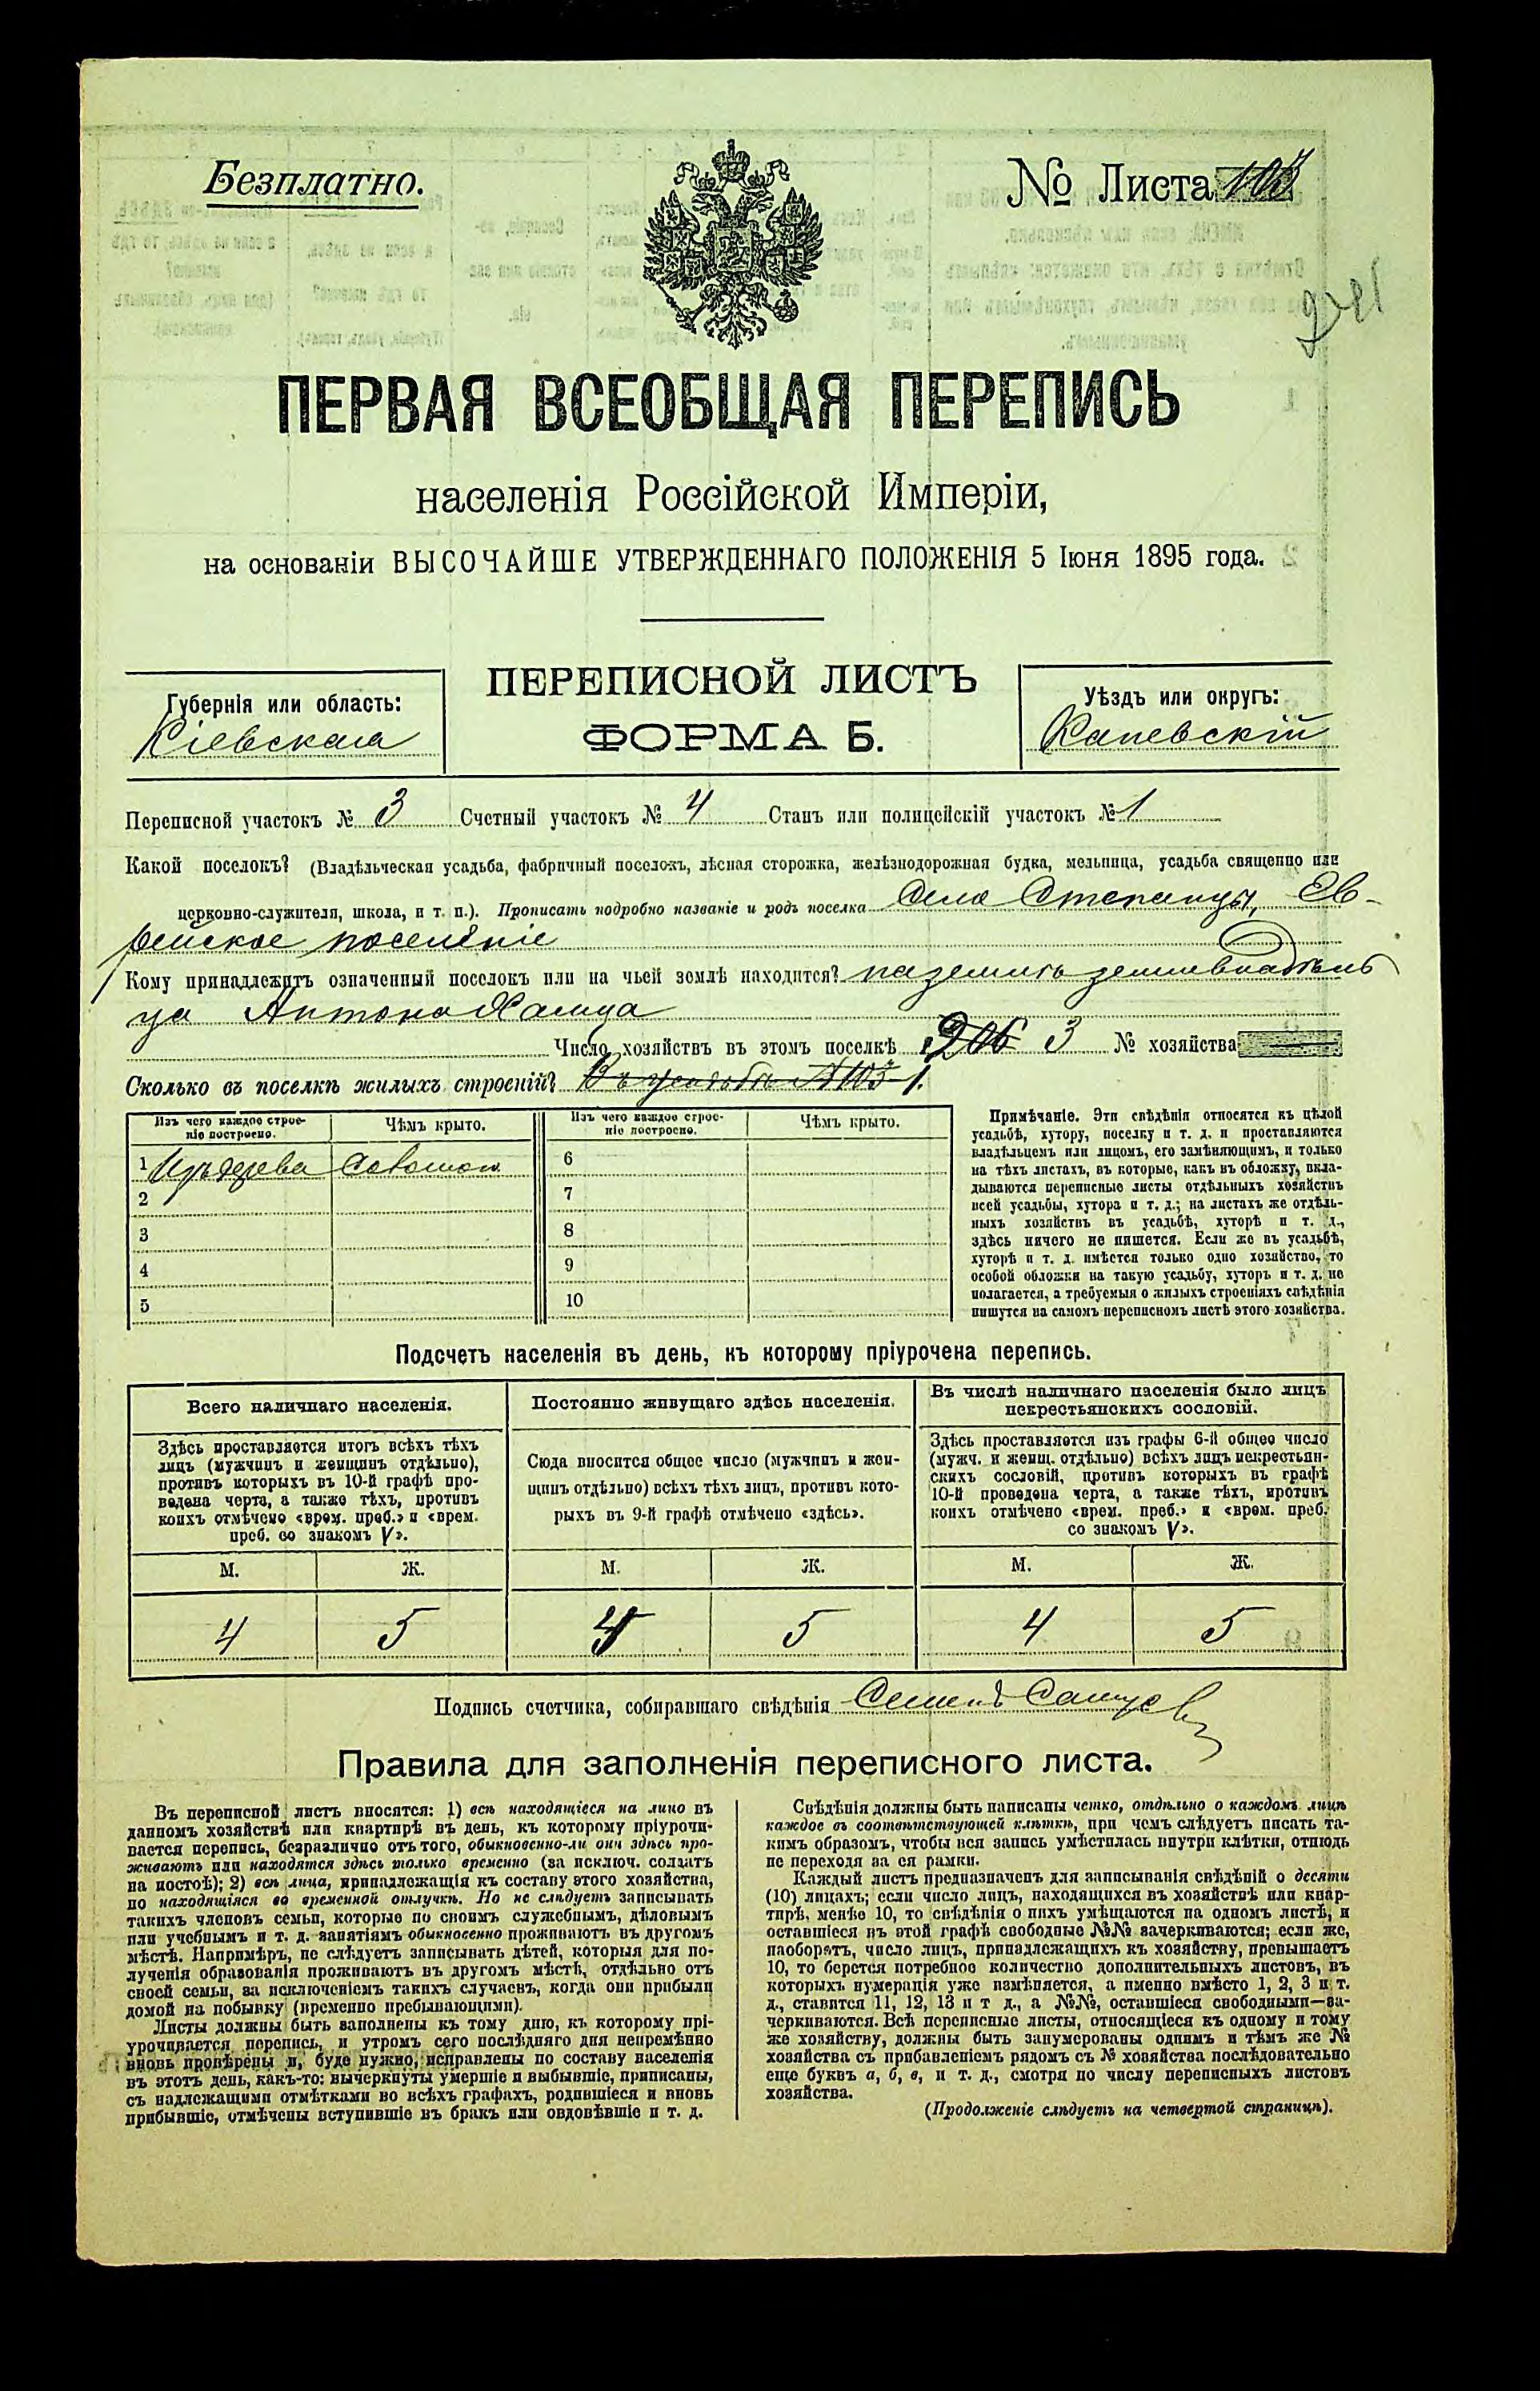 Безплатно.
№ Листа
ПЕРВАЯ ВСЕОБЩАЯ ПЕРЕПИСЬ
населенія Россійской Имперіи,
на основаніи ВЫСОЧАЙШЕ УТВЕРЖДЕННАГО ПОЛОЖЕНІЯ 5 Іюня 1895 года.
ПЕРЕПИСНОЙ ЛИСТЪ
ФОРМА Б.
Губернія или область:
Кіевская
Уѣздъ или округъ:
Каневскій
Переписной участокъ № 3 Счетный участокъ № 4 Станъ или полицейскій участокъ № 1
Какой поселокъ? (Владѣльческая усадьба, фабричный поселокъ, лѣсная сторожка, желѣзнодорожная будка, мельница, усадьба священно или
церковно-служителя, школа, и т. п.). Прописать подробно названіе и родъ поселка Село Степанцы, Ев-
рейское поселеніе
Кому принадлежитъ означенный поселокъ или на чьей землѣ находится? на земли землевладѣль
ца Антона
Число хозяйствъ въ этомъ поселкѣ 206 3 № хозяйства
Сколько въ поселкѣ жилыхъ строеній? 1.
Изъ чего каждое строе-
ніе построено.
Чѣмъ крыто.
Изъ чего каждое строе-
ніе построено.
Чѣмъ крыто.
1 Изъ дерева Соломою
2
3
4
5
6
7
8
9
10
Примѣчаніе. Эти свѣдѣнія относятся къ цѣлой
усадьбѣ, хутору, поселку и т. д. и проставляются
владѣльцемъ или лицомъ, его замѣняющимъ, и только
на тѣхъ листахъ, въ которые, какъ въ обложку, вкла-
дываются переписные листы отдѣльныхъ хозяйствъ
всей усадьбы, хутора и т. д.; на листахъ же отдѣль-
ныхъ хозяйствъ въ усадьбѣ, хуторѣ и т. д.,
здѣсь ничего не пишется. Если же въ усадьбѣ,
хуторѣ и т. д. имѣется только одно хозяйство, то
особой обложки на такую усадьбу, хуторъ и т. д. не
полагается, а требуемыя о жилыхъ строеніяхъ свѣдѣнія
пишутся на самомъ переписномъ листѣ этого хозяйства.
Подсчетъ населенія въ день, къ которому пріурочена перепись.
Всего наличнаго населенія.
Здѣсь проставляется итогъ всѣхъ тѣхъ
лицъ (мужчинъ и женщинъ отдѣльно),
противъ которыхъ въ 10-й графѣ про-
ведена черта, а также тѣхъ, противъ
коихъ отмѣчено «врем. преб.» и «врем.
преб. со знакомъ V».
Постоянно живущаго здѣсь населенія.
Сюда вносится общее число (мужчинъ и жен-
щинъ отдѣльно) всѣхъ тѣхъ лицъ, противъ кото-
рыхъ въ 9-й графѣ отмѣчено «здѣсь».
Въ числѣ наличнаго населенія было лицъ
некрестьянскихъ сословій.
Здѣсь проставляется изъ графы 6-й общее число
(мужч. и женщ. отдѣльно) всѣхъ лицъ некрестьян-
скихъ сословій, противъ которыхъ въ графѣ
10-й проведена черта, а также тѣхъ, противъ
коихъ отмѣчено «врем. преб.» и «врем. преб.
со знакомъ V».
М. Ж. М. Ж. М. Ж.
4 5 4 5 4 5
Подпись счетчика, собиравшаго свѣдѣнія Семенъ
Правила для заполненія переписного листа.
Въ переписной листъ вносятся: 1) всѣ находящіеся на лицо въ
данномъ хозяйствѣ или квартирѣ въ день, къ которому пріурочи-
вается перепись, безразлично отъ того, обыкновенно-ли они здѣсь про-
живаютъ или находятся здѣсь только временно (за исключ. солдатъ
на постоѣ); 2) всѣ лица, принадлежащія къ составу этого хозяйства,
но находящіяся во временной отлучкѣ. Но не слѣдуетъ записывать
такихъ членовъ семьи, которые по своимъ служебнымъ, дѣловымъ
или учебнымъ и т. д. занятіямъ обыкновенно проживаютъ въ другомъ
мѣстѣ. Напримѣръ, не слѣдуетъ записывать дѣтей, которыя для по-
лученія образованія проживаютъ въ другомъ мѣстѣ, отдѣльно отъ
своей семьи, за исключеніемъ такихъ случаевъ, когда они прибыли
домой на побывку (временно пребывающими).
Листы должны быть заполнены къ тому дню, къ которому прі-
урочивается перепись, и утромъ сего послѣдняго дня непремѣнно
вновь провѣрены и, буде нужно, исправлены по составу населенія
въ этотъ день, какъ-то: вычеркнуты умершіе и выбывшіе, приписаны,
съ надлежащими отмѣтками во всѣхъ графахъ, родившіеся и вновь
прибывшіе, отмѣчены вступившіе въ бракъ или овдовѣвшіе и т. д.
Свѣдѣнія должны быть написаны четко, отдѣльно о каждомъ лицѣ
каждое въ соотвѣтствующей клѣткѣ, при чемъ слѣдуетъ писать та-
кимъ образомъ, чтобы вся запись умѣстилась внутри клѣтки, отнюдь
не переходя за ея рамки.
Каждый листъ предназначенъ для записыванія свѣдѣній о десяти
(10) лицахъ; если число лицъ, находящихся въ хозяйствѣ или квар-
тирѣ, менѣе 10, то свѣдѣнія о нихъ умѣщаются на одномъ листѣ, и
оставшіеся въ этой графѣ свободные №№ зачеркиваются; если же,
наоборотъ, число лицъ, принадлежащихъ къ хозяйству, превышаетъ
10, то берется потребное количество дополнительныхъ листовъ, въ
которыхъ нумерація уже измѣняется, а именно вмѣсто 1, 2, 3 и т.
д., ставится 11, 12, 13 и т д., а №№, оставшіеся свободными—за-
черкиваются. Всѣ переписные листы, относящіеся къ одному и тому
же хозяйству, должны быть занумерованы однимъ и тѣмъ же №
хозяйства съ прибавленіемъ рядомъ съ № хозяйства послѣдовательно
еще буквъ а, б, в, и т. д., смотря по числу переписныхъ листовъ
хозяйства.
(Продолженіе слѣдуетъ на четвертой страницѣ).